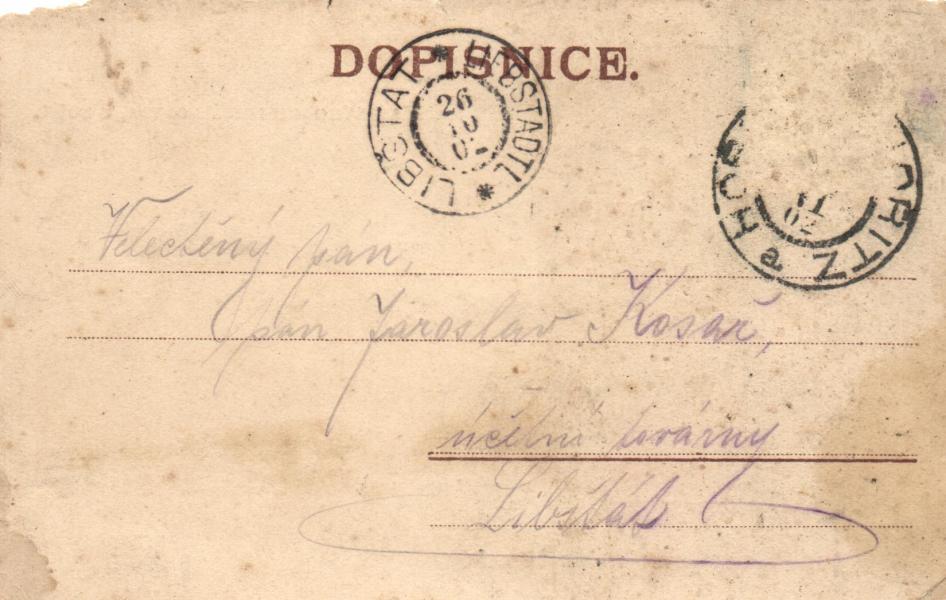 DOPISNICE.
LIBŠTAT * LIEBSTADTL *
26
10
02
ITZ a HO
11
02
Velectěný pan,
pan Jaroslav Kosař,
účetní továrny
Libštát